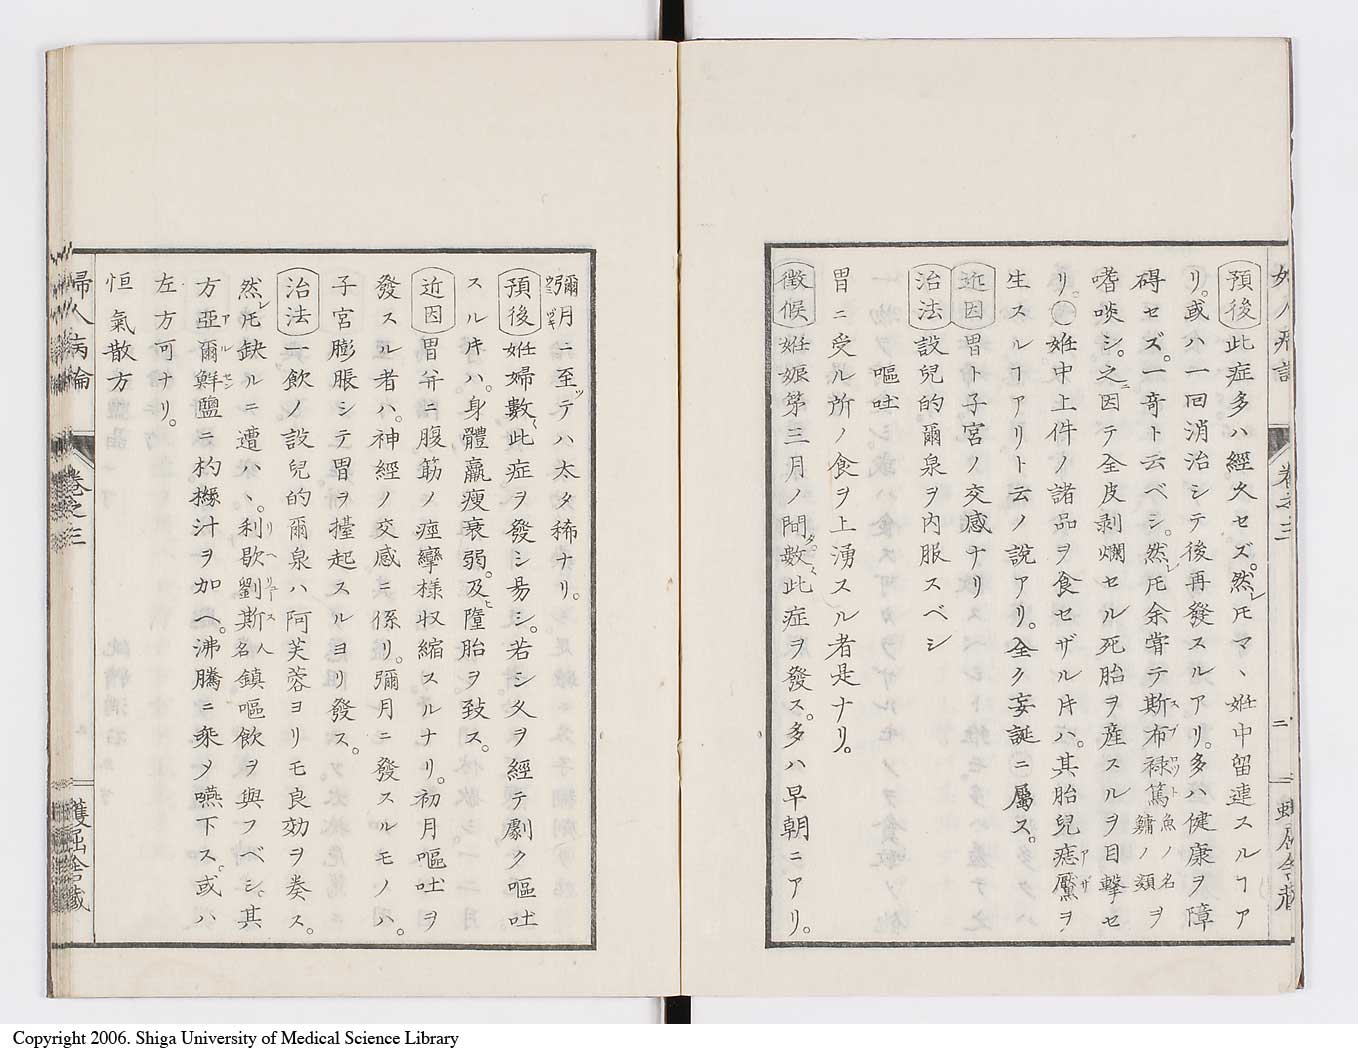 預後此症多ハ經久セズ。然レ𪜈マヽ姙中留連スルヿア
リ。或ハ一回消治シテ後再發スルアリ。多ハ健康ヲ障
碍セズ。一奇ト云ベシ。然レ𪜈余嘗テ斯布祿篤魚ノ名鱅ノ類ヲ
嗜啖シ。之ニ因テ全皮剥爛セル死胎ヲ産スルヲ目擊セ
リ。○姙中上件ノ諸品ヲ食セザル片ハ。其胎兒痣黶ヲ
生スルヿアリト云ノ説アリ。全ク妄誕ニ屬ス。
近因胃ト子宮ノ交感ナリ
治法設兒的爾泉ヲ内服スベシ
嘔吐
胃ニ受ル所ノ食ヲ上湧スル者是ナリ。
徴候姙娠第三月ノ間數〻此症ヲ發ス。多ハ早朝ニアリ。
彌月ニ至ッテハ太タ稀ナリ。
預後姙婦數〻此症ヲ發シ昜シ。若シ久ヲ經テ劇ク嘔吐
スル片ハ。身體羸瘦衰弱。及ヒ墮胎ヲ致ス。
近因胃幷ニ腹筋ノ痙攣様収縮スルナリ。初月嘔吐ヲ
發スル者ハ。神經ノ交感ニ係リ。彌月ニ發スルモノハ。
子宮膨脹シテ胃ヲ擡起スルヨリ發ス。
治法一飲ノ設兒的爾泉ハ阿芙蓉ヨリモ良効ヲ奏ス。
然レ𪜈缺ルニ遭ハヽ。利歇劉斯人名鎮嘔飲ヲ與フベシ。其
方亞爾鮮鹽ニ枸櫞汁ヲ加ヘ。沸騰ニ乘メ嚥下ス。或ハ
左方可ナリ。
恒氣散方
婦人病論
卷之三
蠖屈舎藏